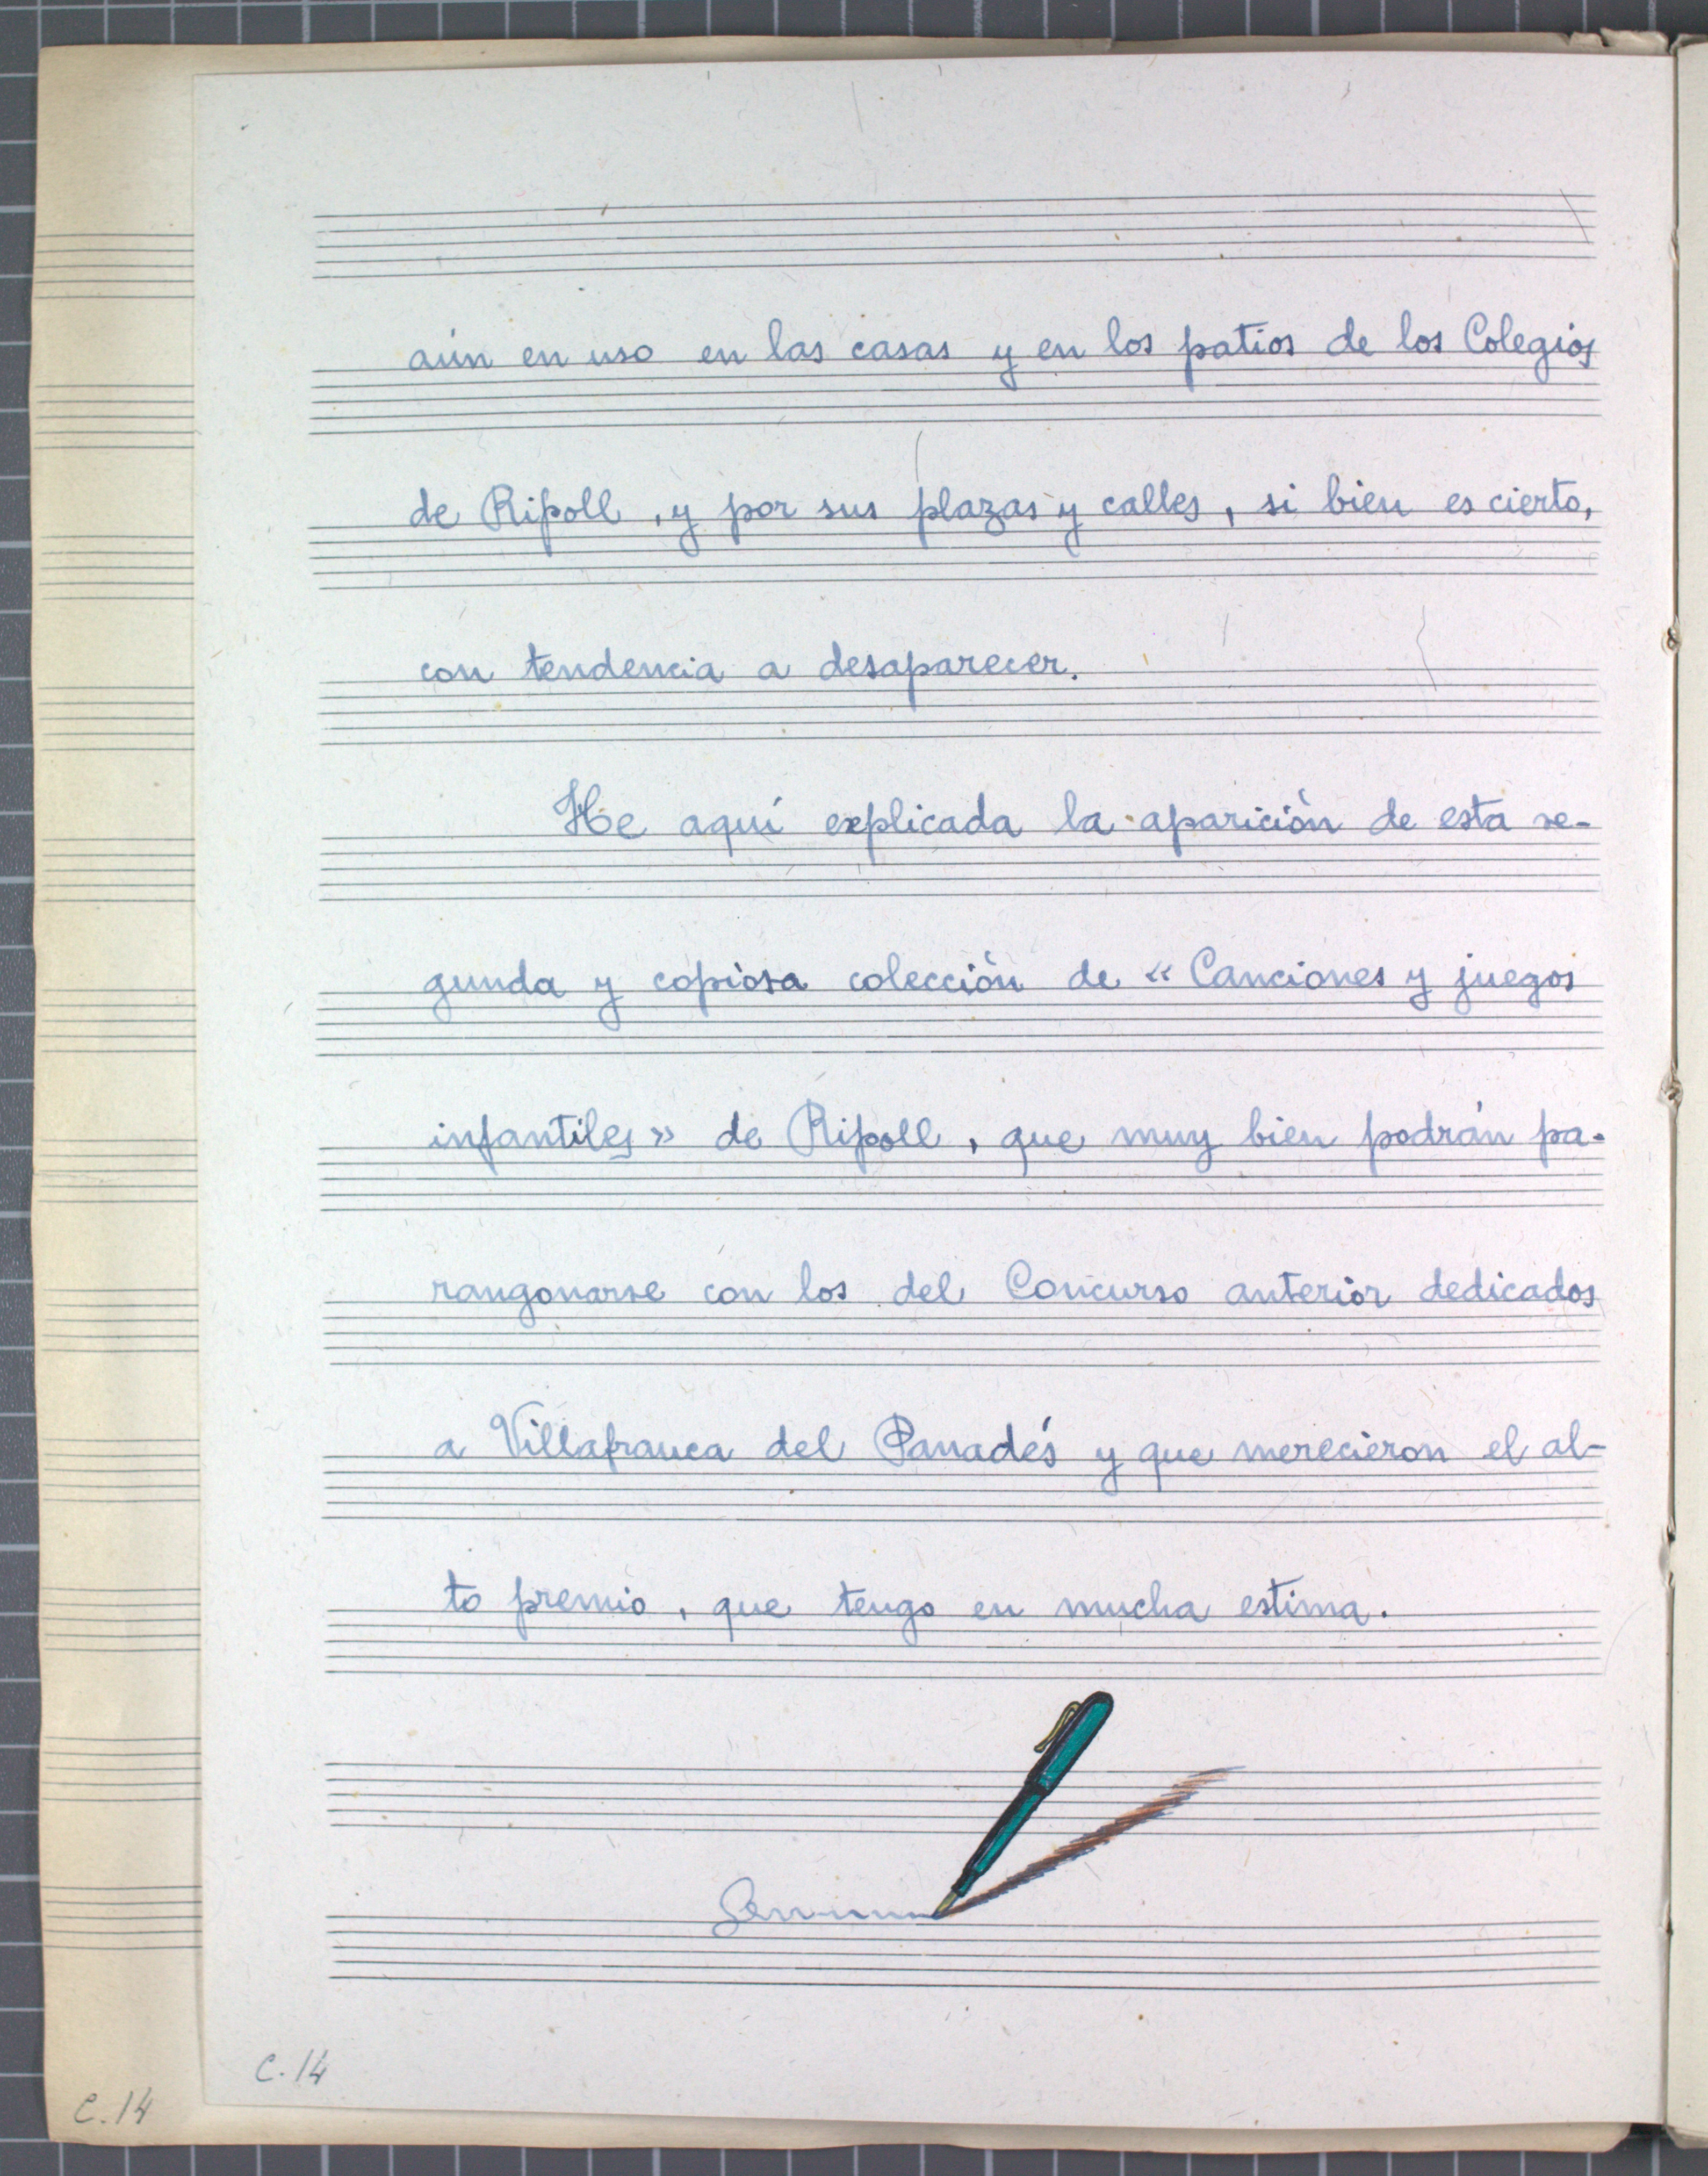 aún en uso en las casas y en los patios de los Colegios
de Ripoll, y por sus plazas y calles, si bien es cierto,
con tendencia a desaparecer.
He aquí explicada la aparición de esta se-
gunda y copiosa colección de « Canciones y juegos
infantiles » de Ripoll, que muy bien podrán pa-
rangonarse con los del Concurso anterior dedicados
a Villafranca del Panadés y que merecieron el al-
to premio, que tengo en mucha estima.
C. 14
C. 14